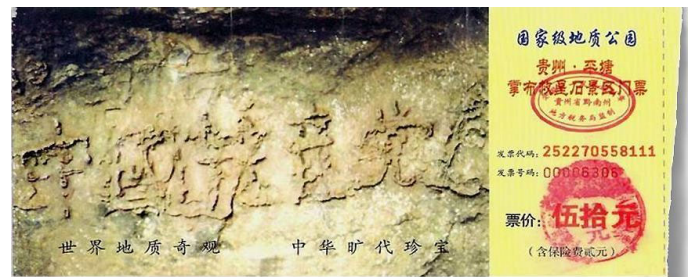 中国共产党
世界地质奇观
中华旷代珍宝
国家级地质公园
贵州·平塘
掌布救星石景区门票
贵州省黔南州
地方税务局监制
发票代码：252270558111
发票号码：00006306
票价：伍拾元
（含保险费贰元）